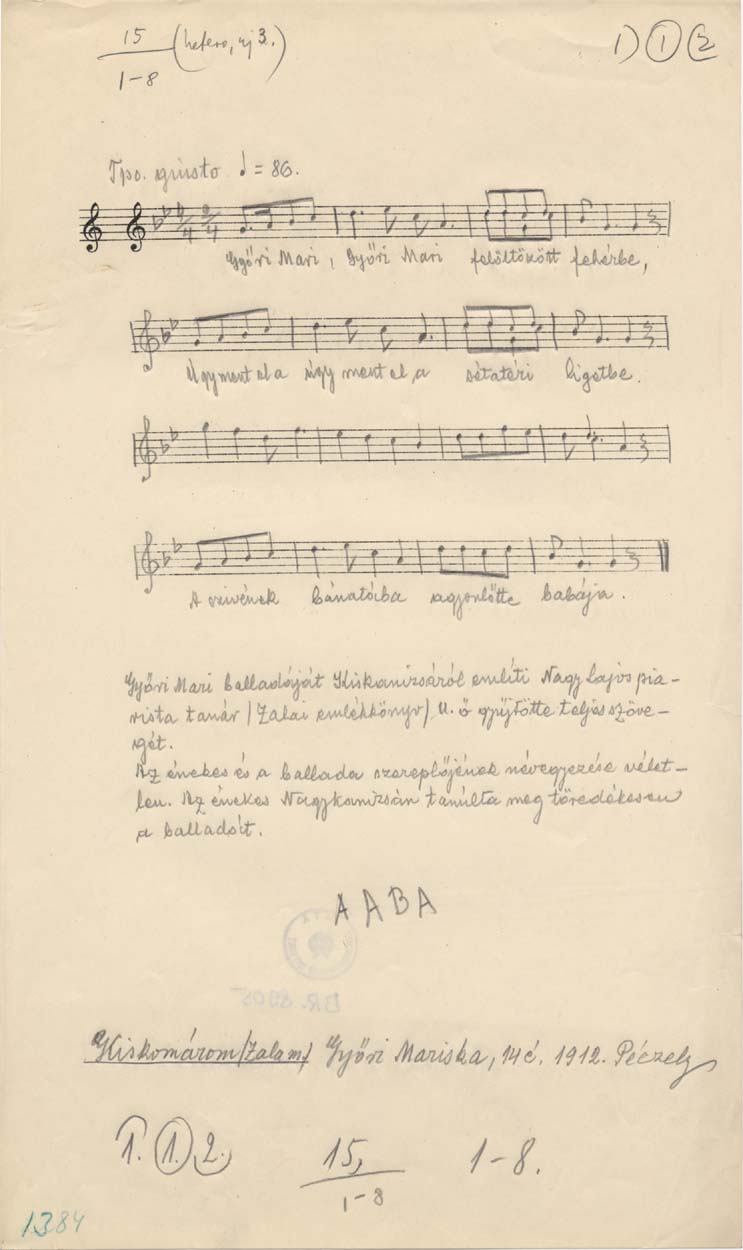 15 (hetero, új 3.)
1-8
1) 1 2
Tpo. giusto ♩ = 86.
Győri Mari, Győri Mari felöltözött fehérbe,
Úgy ment el a úgy ment el, a sétatéri ligetbe.
A szivének bánatába agyonlőtte babája.
Győri Mari balladáját Kiskanizsáról említi Nagy Lajos pia-
rista tanár (Zalai emlékkönyv) U. ő gyűjtötte teljes szöve-
gét.
Az énekes és a ballada szereplőjének névegyezése vélet-
len. Az énekes Nagykanizsán tanúlta meg töredékesen
a balladát.
A A B A
BR. 8905
Kiskomárom (Zala m.) Győri Mariska, 14 é. 1912. Péczely
1. 1. 2. 15, 1-8.
1-8
1384